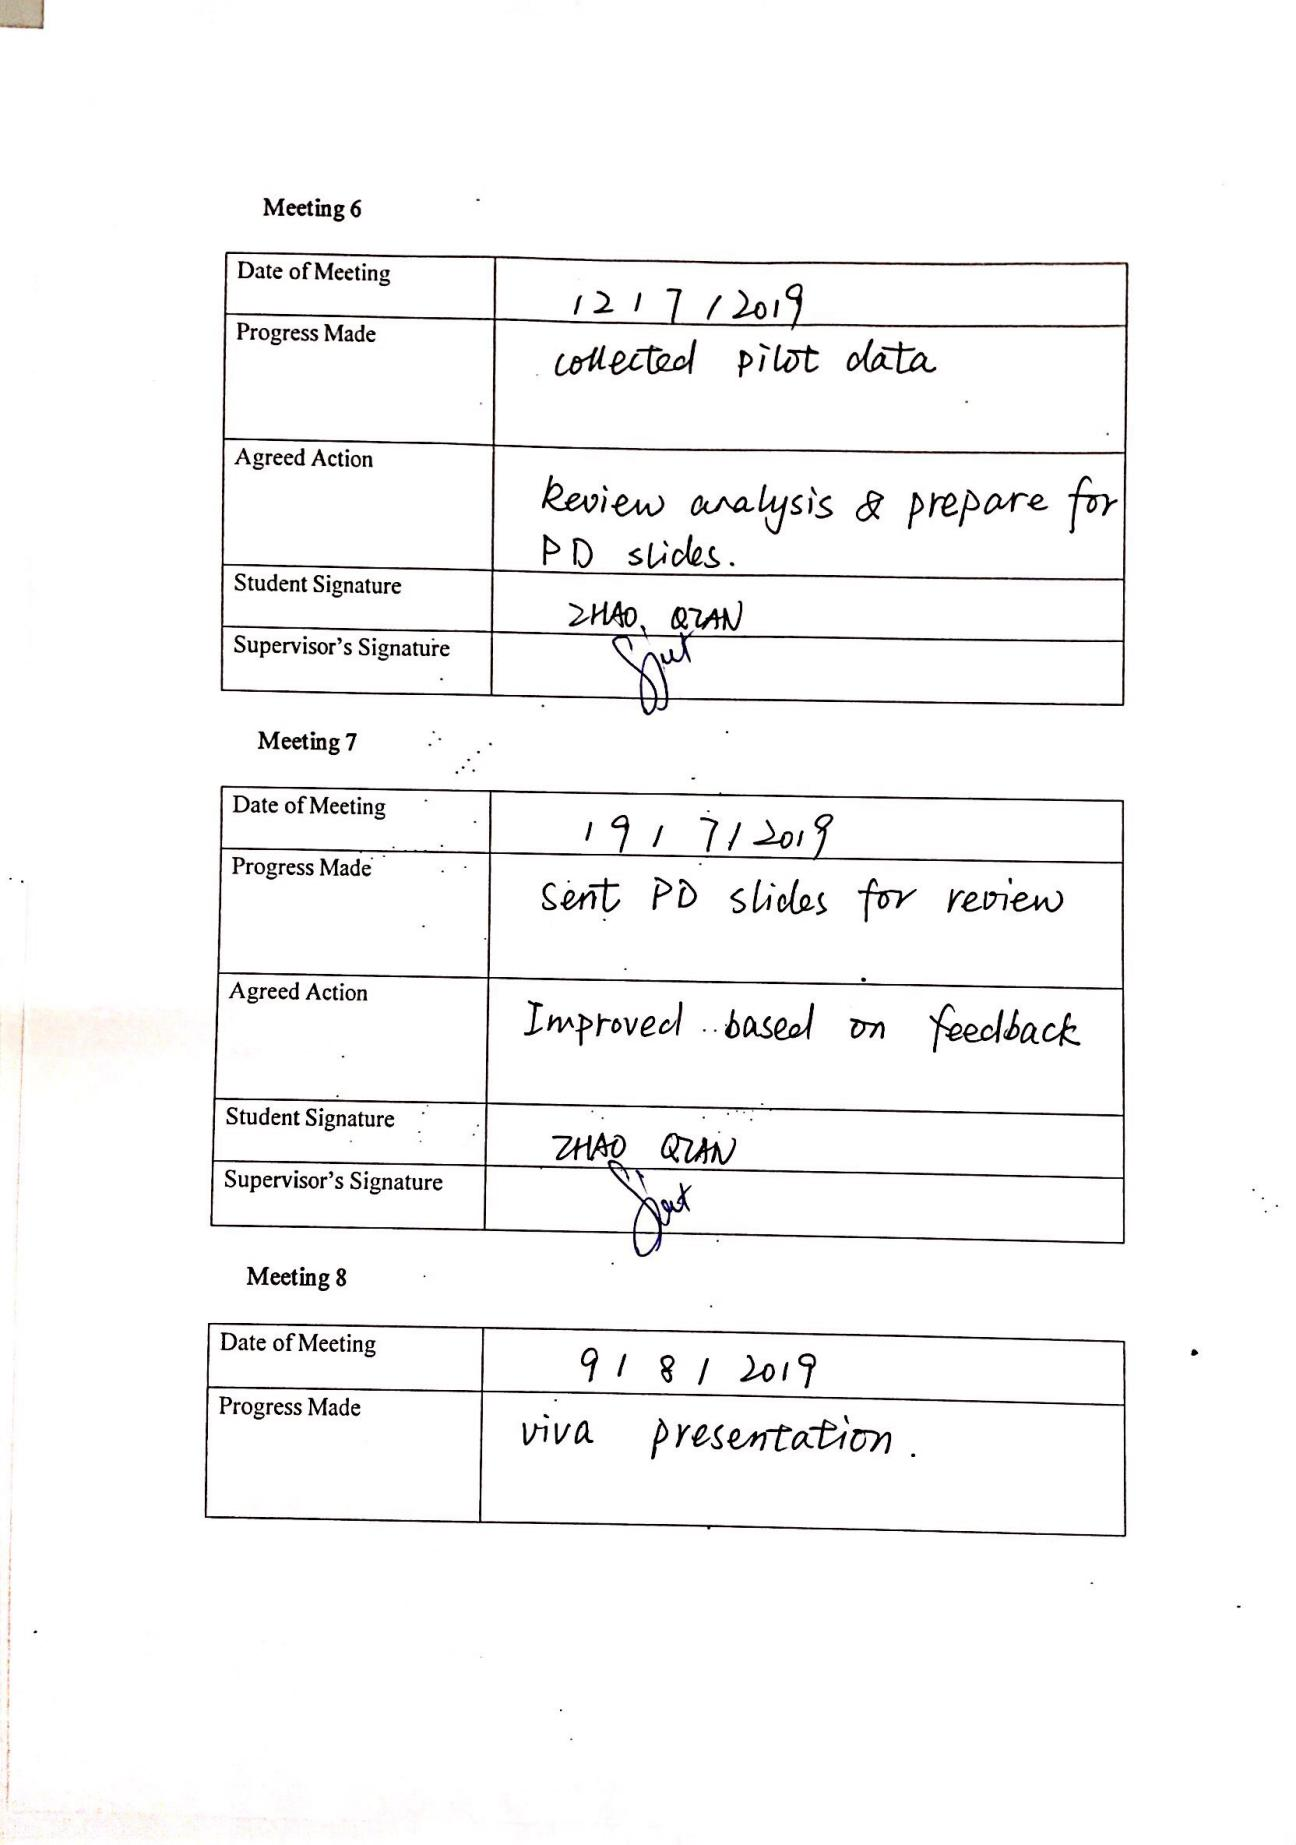 Meeting 6
Date of Meeting
12 / 7 / 2019
Progress Made
collected pilot data
Agreed Action
Review analysis & prepare for
PD slides.
Student Signature
ZHAO, QIAN
Supervisor's Signature
Meeting 7
Date of Meeting
19 / 7 / 2019
Progress Made
Sent PD slides for review
Agreed Action
Improved based on feedback
Student Signature
ZHAO QIAN
Supervisor's Signature
Meeting 8
Date of Meeting
9 / 8 / 2019
Progress Made
viva presentation.